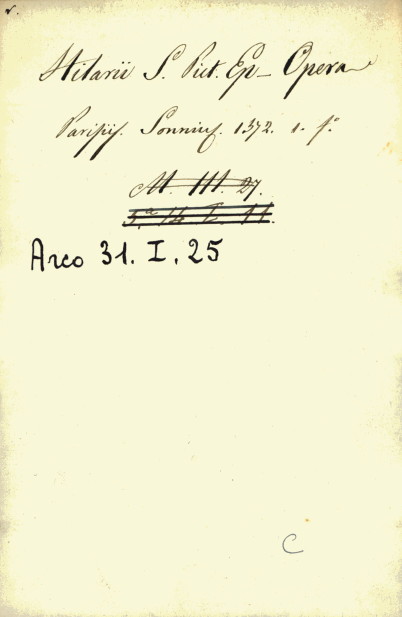 v.
Hilarii S. Pict. Ep– Opera
Parisiis. Sonnius. 1372. 1. fº
M. III. 27.
Arco 31. I. 25
C